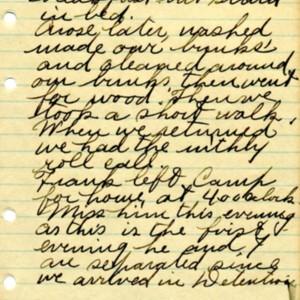 in bed.
Arose later, washed
made our bunks
and cleaned around
our bunks, then went
for wood. Then we
took a short walk.
When we returned
we had the nithly
roll call.
Frank left Camp
for home, at 4:00 o'clock.
Miss him this evening
as this is the first
evening he and I
are separated since
we arrived in Detention